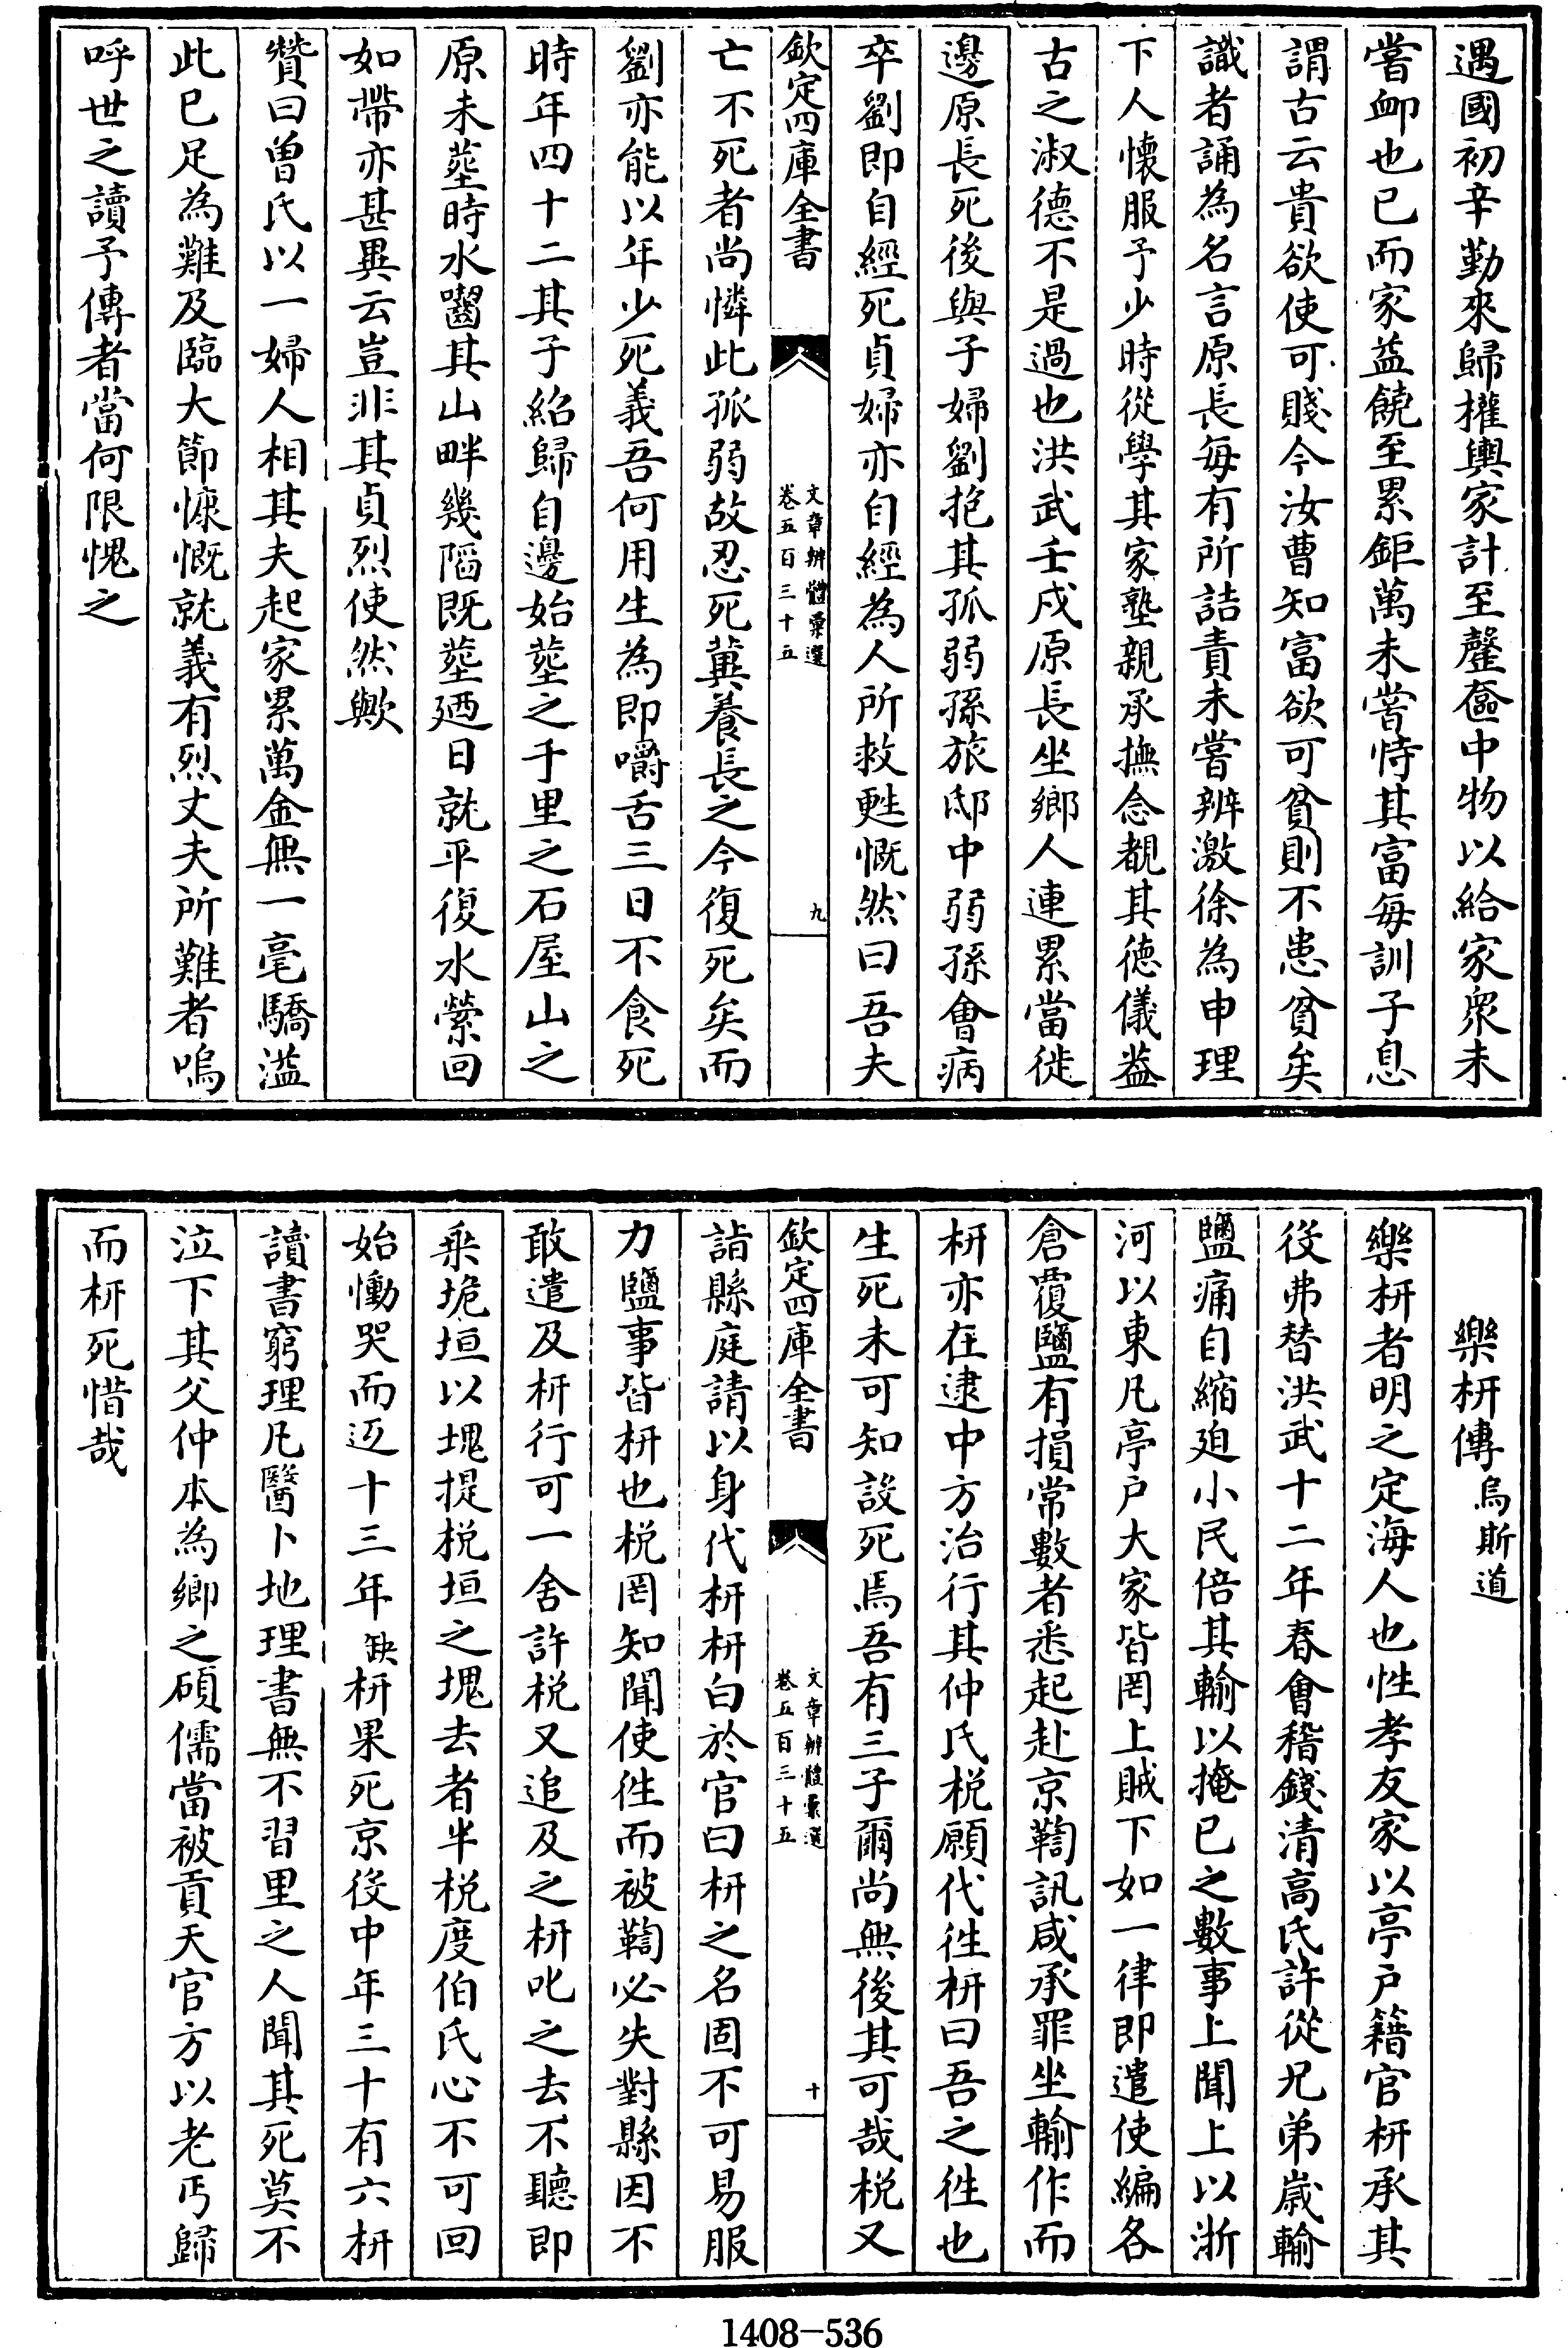 遇國初辛勤來歸權輿家計至罄奩中物以給家衆未
嘗衂也已而家益饒至累鉅萬未嘗恃其富每訓子息
謂古云貴欲使可賤今汝曹知富欲可貧則不患貧矣
識者誦為名言原長每有所詰責未嘗辨激徐為申理
下人懷服予少時從學其家塾親承撫念覩其徳儀益
古之淑德不是過也洪武壬戍原長坐鄉人連累當徙
邊原長死後與子婦劉抱其孤弱孫旅邸中弱孫㑹病
卒劉即自經死貞婦亦自經為人所救甦慨然曰吾夫
欽定四庫全書
文章辨體彙選
卷五百三十五
九
亡不死者尚憐此孤弱故忍死冀養長之今復死矣而
劉亦能以年少死義吾何用生為即嚼舌三日不食死
時年四十二其子紹歸自邊始塟之千里之石屋山之
原未塟時水嚙其山畔幾陷既塟廼日就平復水縈回
如帶亦甚異云豈非其貞烈使然歟
贊曰曾氏以一婦人相其夫起家累萬金無一毫驕溢
此已足為難及臨大節慷慨就義有烈丈夫所難者嗚
呼世之讀予傳者當何限愧之
樂枅傳烏斯道
樂枅者明之定海人也性孝友家以亭户籍官枅承其
役弗替洪武十二年春㑹稽錢清高氏許從兄弟嵗輸
鹽痛自縮廹小民倍其輸以掩已之數事上聞上以浙
河以東凡亭户大家皆罔上賊下如一律即遣使編各
倉覆鹽有損常數者悉起赴京鞫訊咸承罪坐輸作而
枅亦在逮中方治行其仲氏棁願代徃枅曰吾之徃也
生死未可知設死焉吾有三子爾尚無後其可哉棁又
欽定四庫全書
文章辨體彙選
卷五百三十五
十
詣縣庭請以身代枅枅白於官曰枅之名固不可易服
力鹽事皆枅也棁罔知聞使徃而被鞫必失對縣因不
敢遣及枅行可一舍許棁又追及之枅叱之去不聽即
乗垝垣以塊提棁垣之塊去者半棁度伯氏心不可回
始慟哭而返十三年缺枅果死京役中年三十有六枅
讀書窮理凡醫卜地理書無不習里之人聞其死莫不
泣下其父仲本為鄉之碩儒當被貢天官方以老丐歸
而枅死惜哉
1408-536